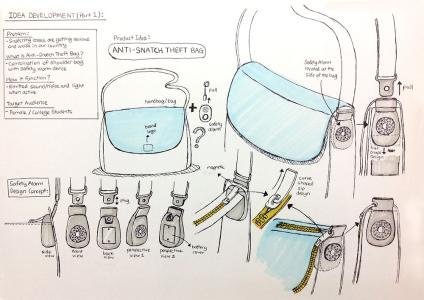 IDEA DEVELOPMENT (Part 1):
Problem:
- Snatching cases are getting serious and worse in our country.
What is Anti-Snatch Theft Bag?
- Combination of shoulder bag with safety alarm device
How it function?
- Emitted sound/noise and light when active.
Target Audience
- Female / College Students
Product Idea:
ANTI-SNATCH THEFT BAG
handbag/bag
brand logo
pull
safety alarm
+
?
Safety Alarm located at the side of the bag
pull
Safety Alarm Design Concept:
side view
front view
back view
perspective view 1
perspective view 2
plug
battery cover
magnetic
curve shaped zip design